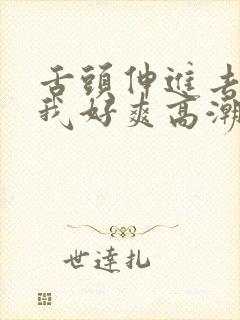 舌頭伸進去
我好爽高潮
世達扎